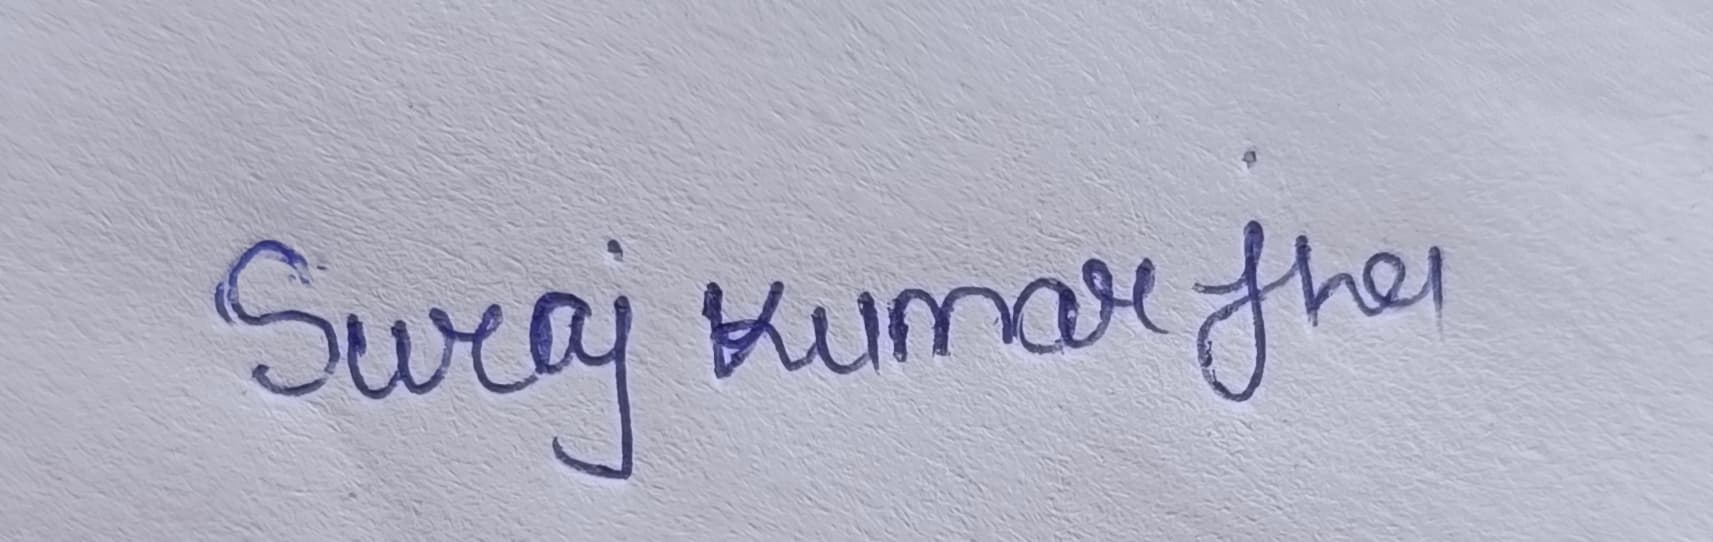 Suraj Kumar Jha